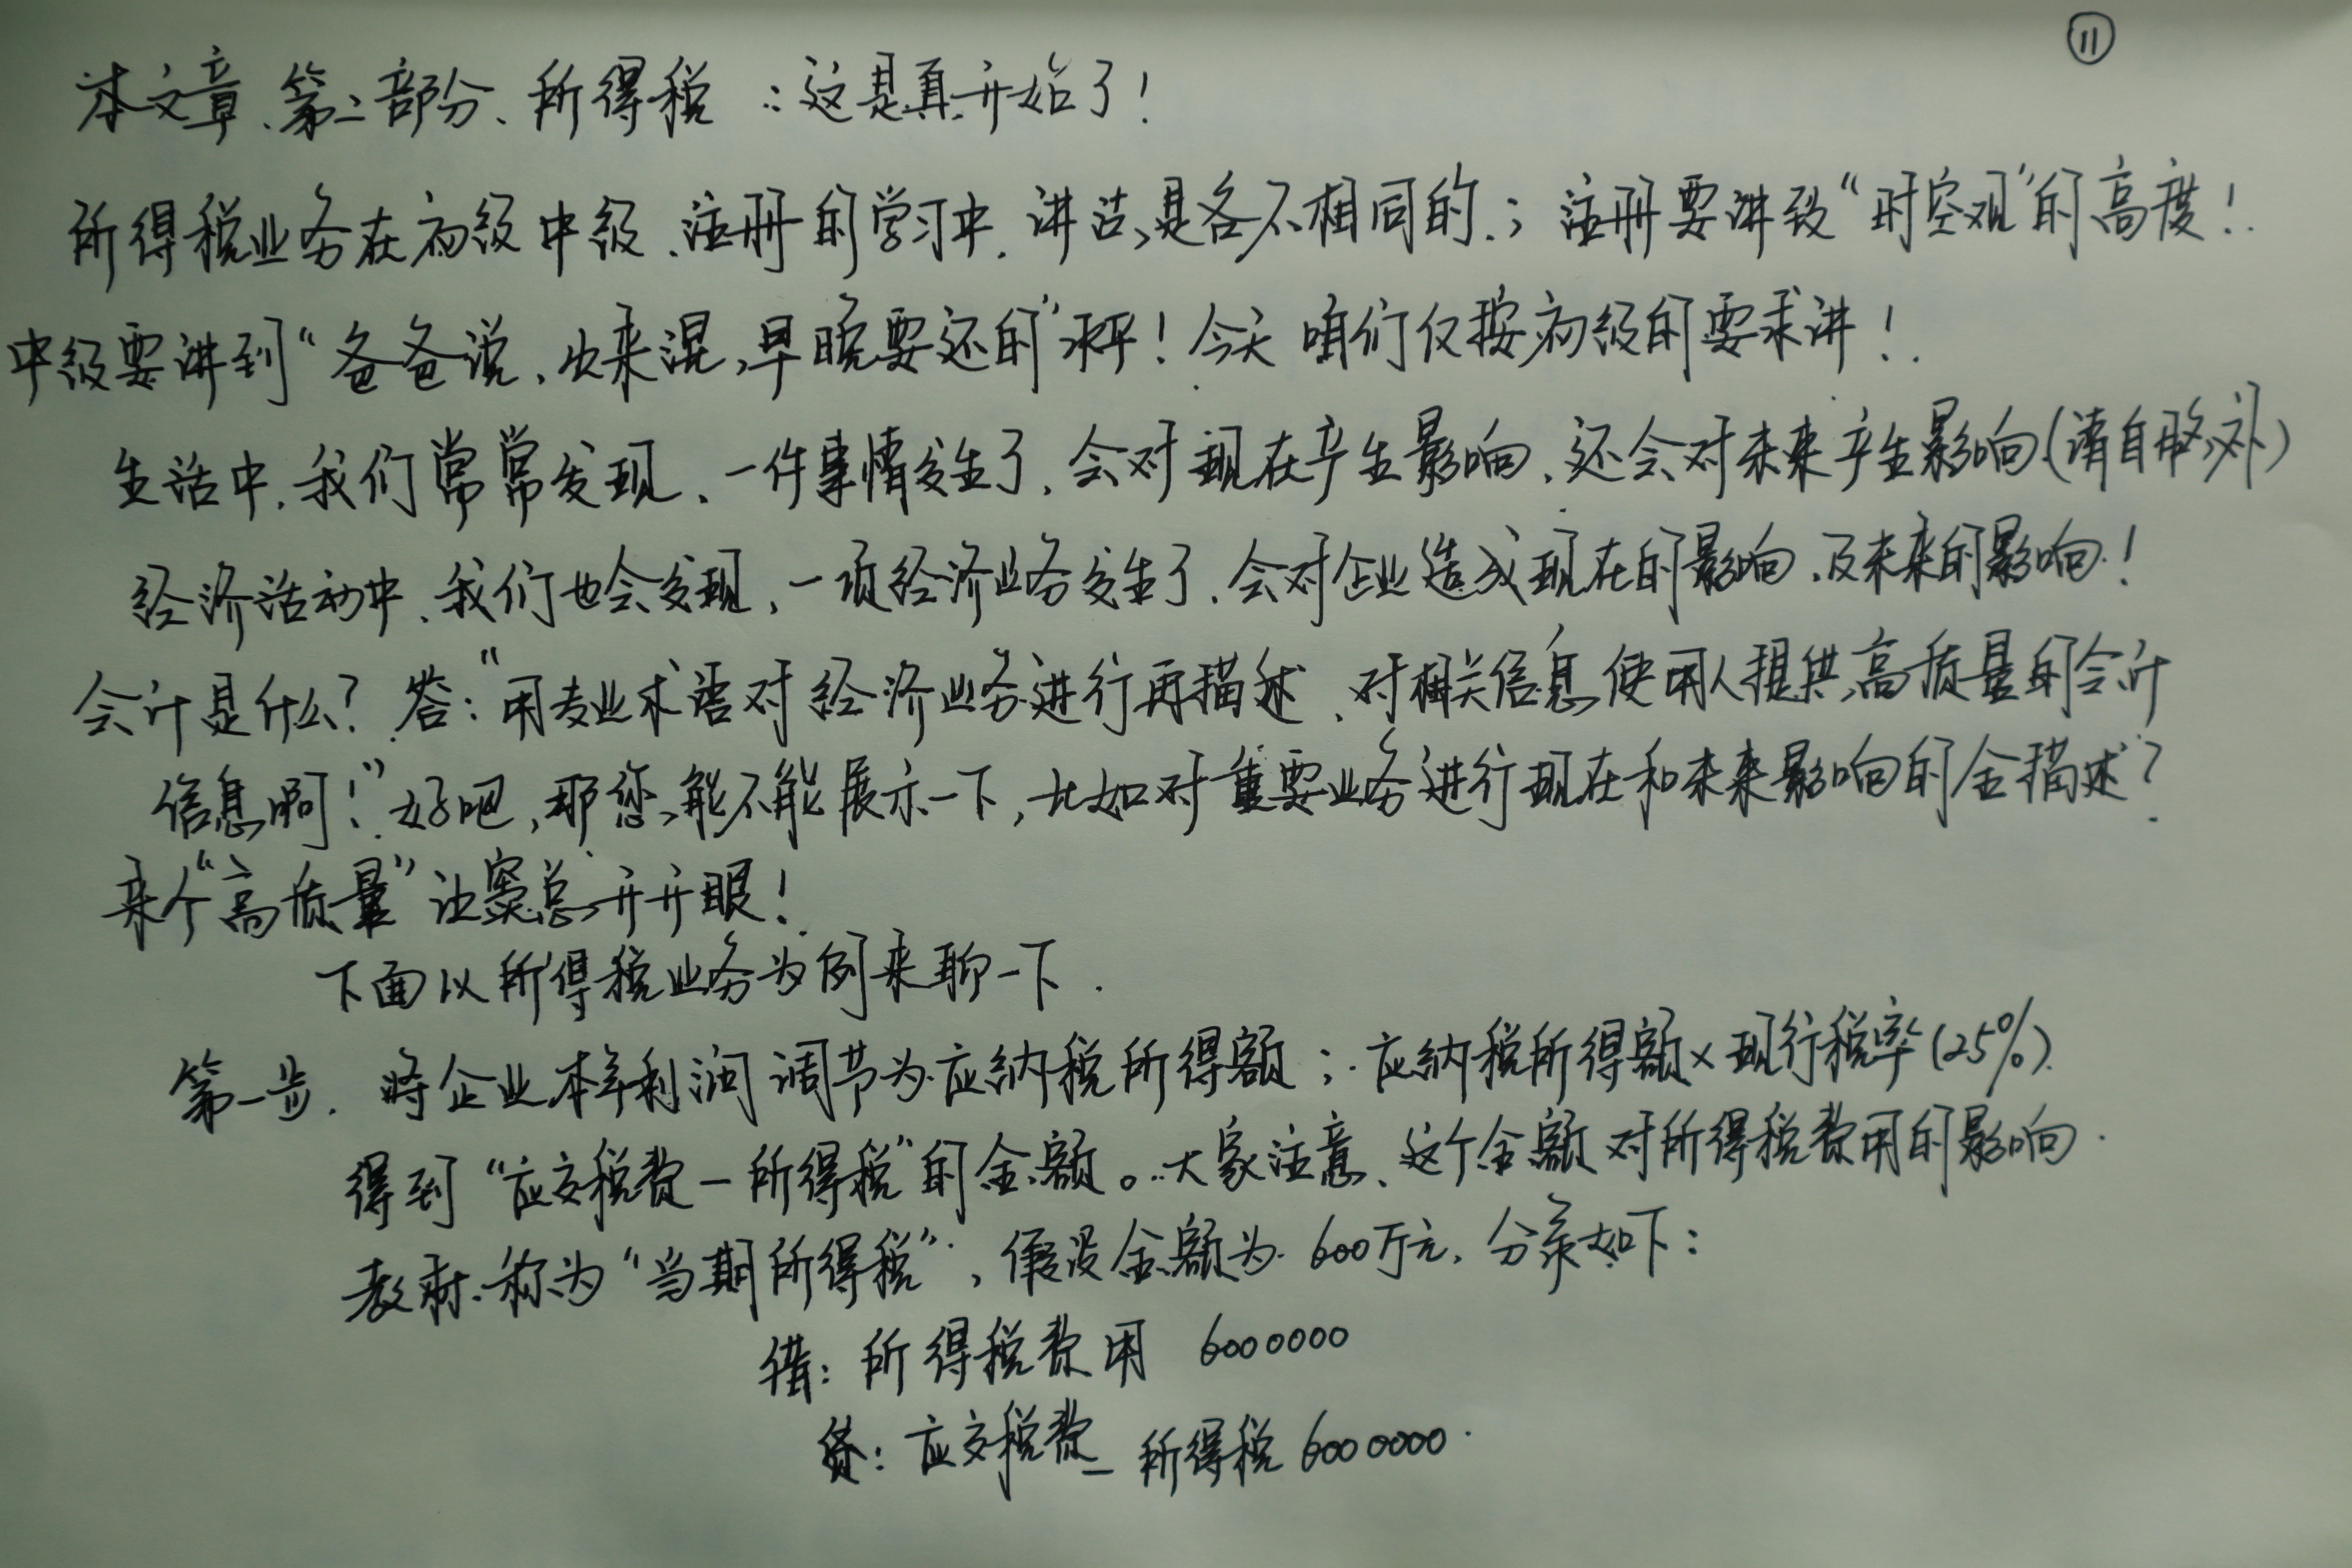 ⑪
本文章、第二部分、所得税：这是真开始了！
所得税业务在初级中级、注册的学习中，讲法是各不相同的；注册要讲致“时空观”的高度！
中级要讲到“爸爸说，出来混，早晚要还的”水平！今天咱们仅按初级的要求讲！
生活中，我们常常发现，一件事情发生了，会对现在产生影响，还会对未来产生影响（请自脑补）
经济活动中，我们也会发现，一项经济业务发生了，会对企业造成现在的影响，及未来的影响！
会计是什么？答：“用专业术语对经济业务进行再描述，对相关信息使用人提供高质量的会计
信息啊！”好吧，那您能不能展示一下，比如对重要业务进行现在和未来影响的全描述？
来个“高质量”让窦总开开眼！
下面以所得税业务为例来聊一下．
第一步．将企业本年利润调节为应纳税所得额；应纳税所得额×现行税率（25%）
得到“应交税费－所得税”的金额。大家注意、这个金额对所得税费用的影响
教材称为“当期所得税”，假设金额为600万元，分录如下：
借：所得税费用 6000000
贷：应交税费－所得税 6000000